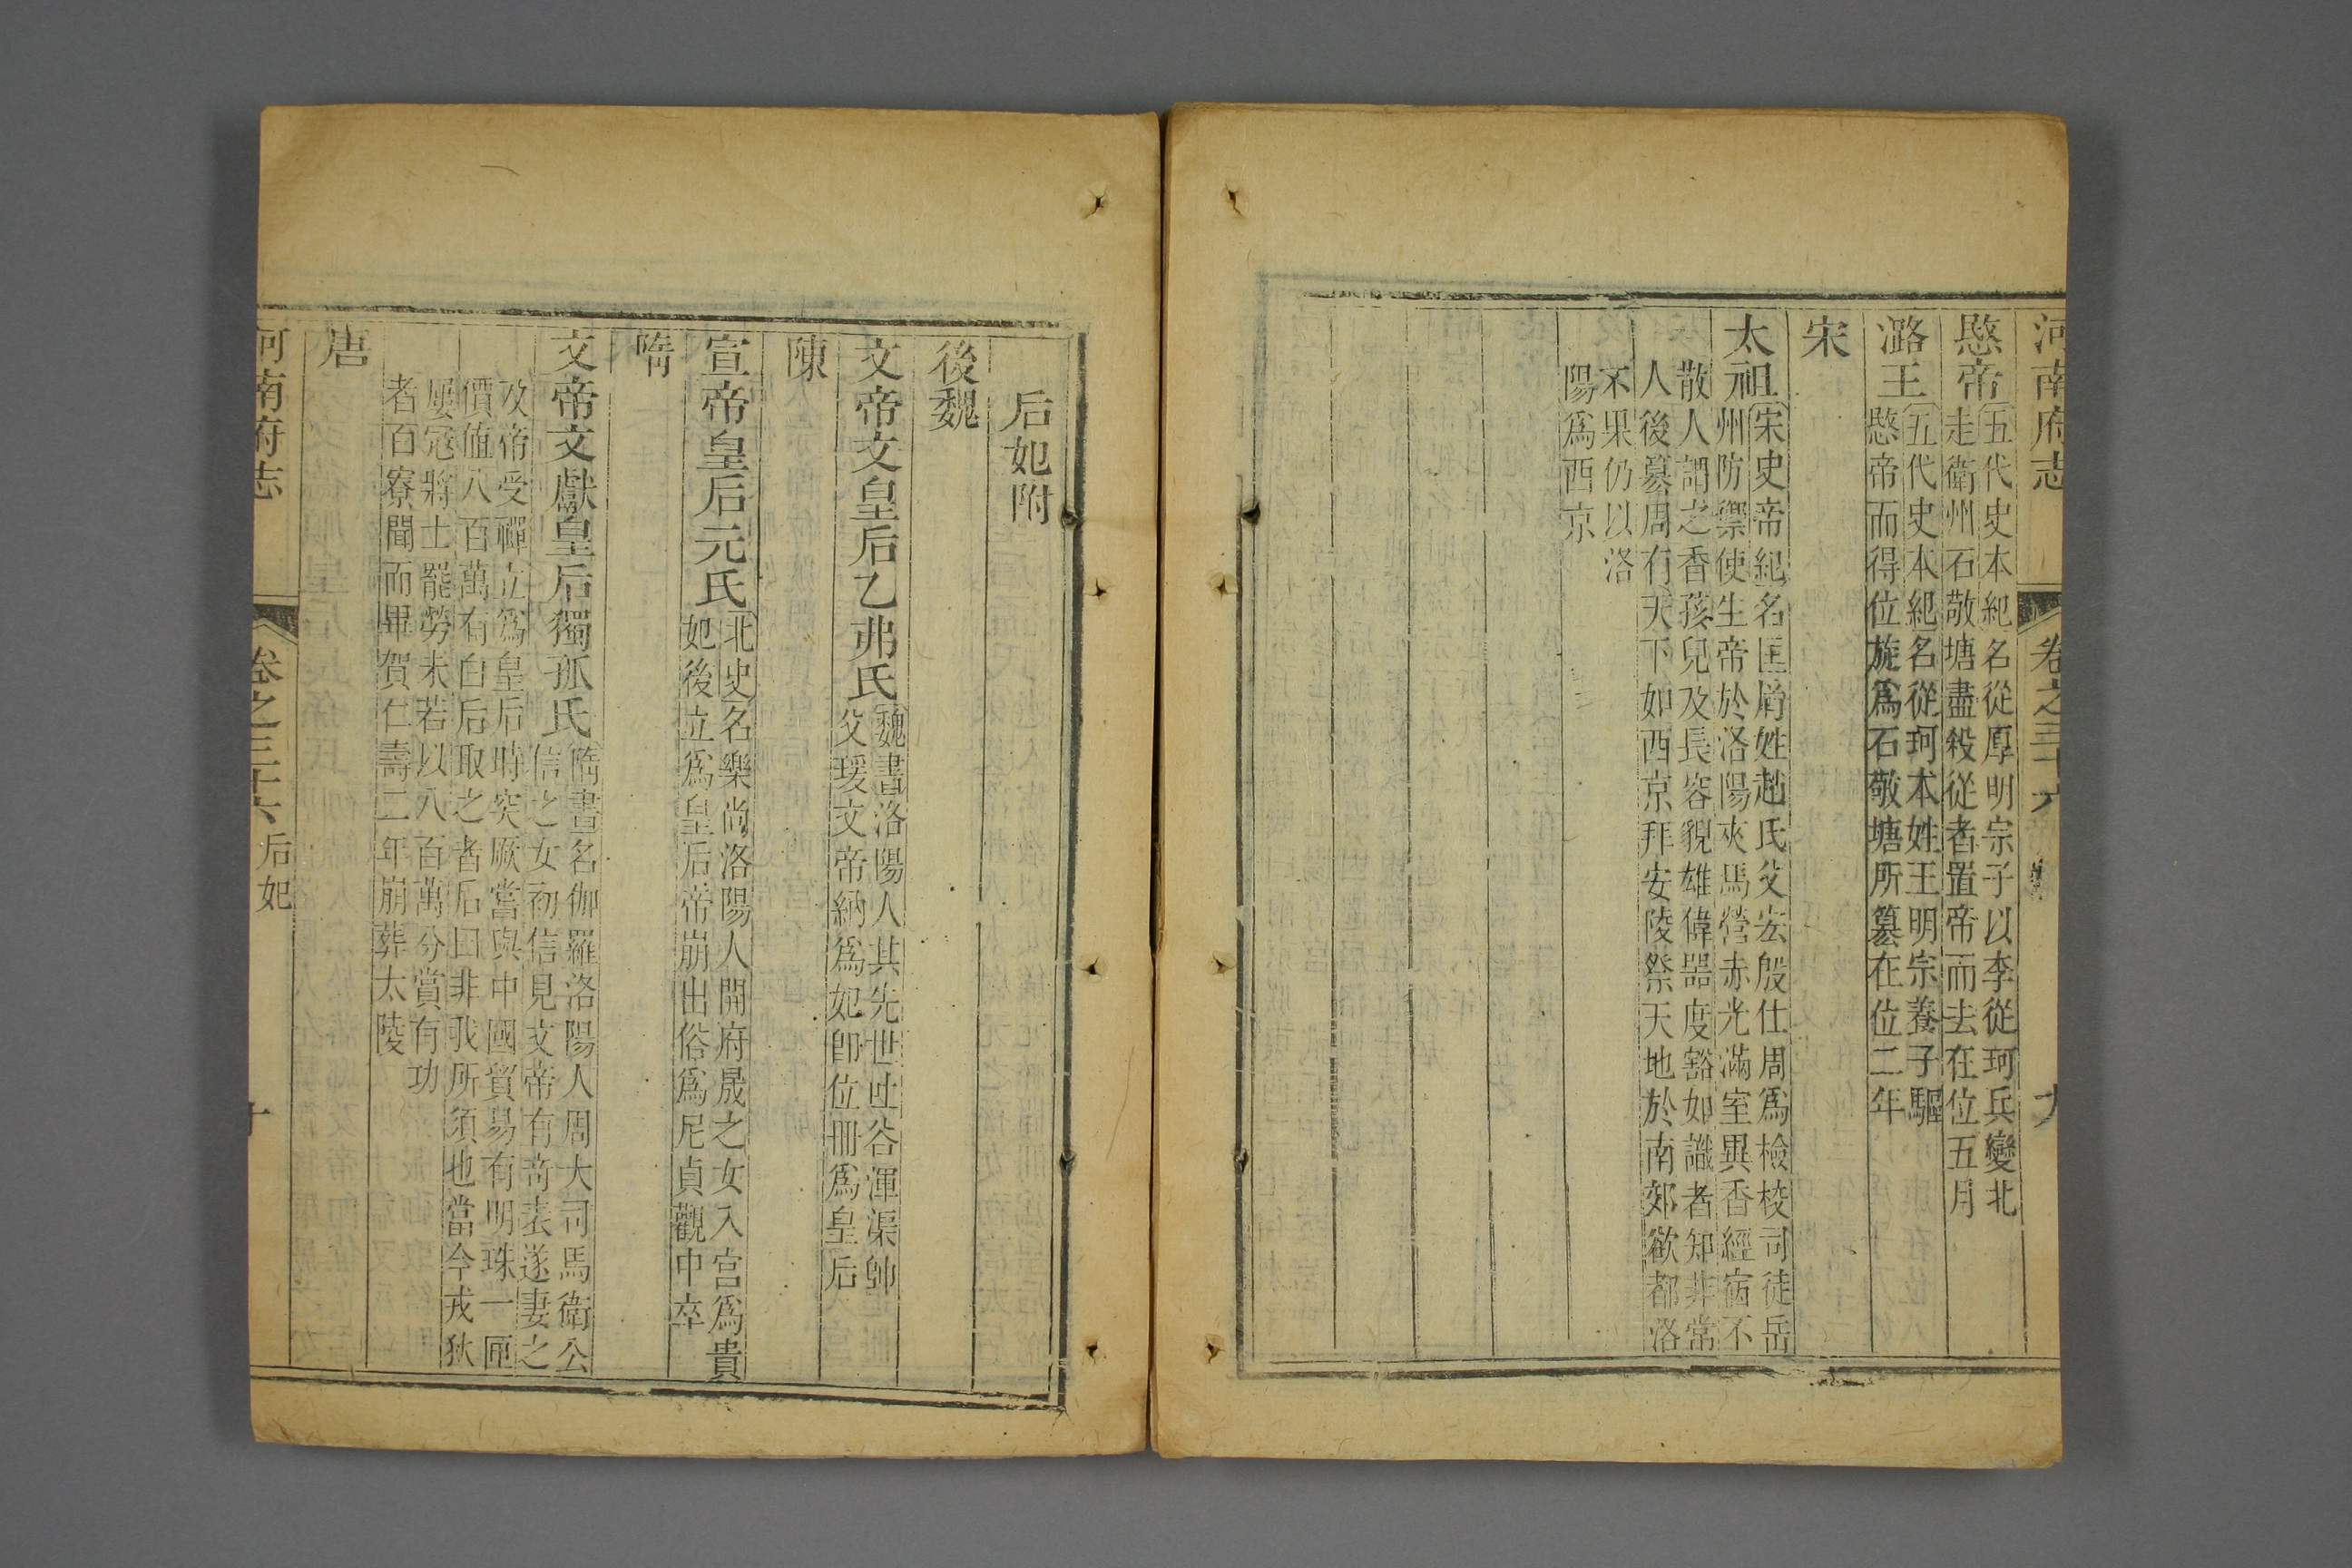 河南府志 卷之三十六 九
愍帝
五代史本紀名從厚明宗子以李從珂兵變北
走衛州石敬塘盡殺從者置帝而去在位五月
潞王
五代史本紀名從珂本姓王明宗養子驅
愍帝而得位旋爲石敬塘所篡在位二年
宋
太祖
宋史帝紀名匡胤姓趙氏父宏殷仕周爲檢校司徒岳
州防禦使生帝於洛陽夾馬營赤光滿室異香經宿不
散人謂之香孩兒及長容貌雄偉器度豁如識者知非常
人後篡周有天下如西京拜安陵祭天地於南郊欲都洛
不果仍以洛
陽爲西京
后妃附
後魏
文帝文皇后乙弗氏
魏書洛陽人其先世吐谷渾渠帥
父瑗文帝納爲妃卽位冊爲皇后
陳
宣帝皇后元氏
北史名樂尚洛陽人開府晟之女入宮爲貴
妃後立爲皇后帝崩出俗爲尼貞觀中卒
隋
文帝文獻皇后獨孤氏
隋書名伽羅洛陽人周大司馬衛公
信之女初信見文帝有奇表遂妻之
及帝受禪立爲皇后時突厥嘗與中國貿易有明珠一匣
價值八百萬有白后取之者后曰非我所須也當今戎狄
屢寇將士罷勞未若以八百萬分賞有功
者百寮聞而畢賀仁壽二年崩葬太陵
唐
河南府志 卷之三十六 后妃 十